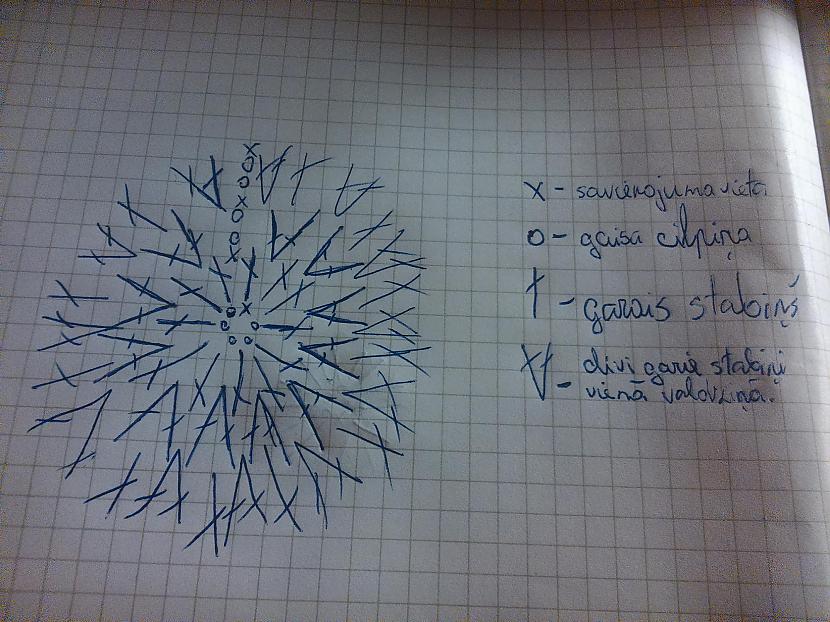 x - savienojuma vieta
o - gaisa cilpiņa
† - garais stabiņš
divi garie stabiņi
- vienā valdziņā.